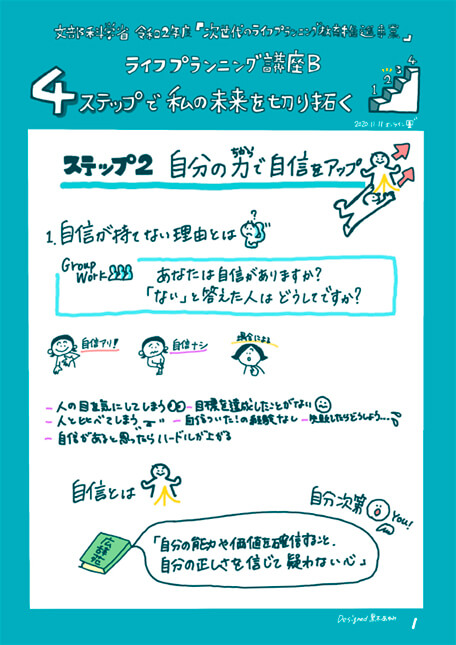 文部科学省 令和2年度「次世代のライフプランニング教育推進事業」
ライフプランニング講座B
4ステップで私の未来を切り拓く
1 2 3 4
2020.11.11 オンライン
ステップ2 自分の力で自信をアップ
ちから
1.自信が持てない理由とは
?
Group Work
あなたは自信がありますか?
「ない」と答えた人はどうしてですか?
自信アリ!
自信ナシ
場合による
- 人の目を気にしてしまう - 目標を達成したことがない
- 人と比べてしまう - 自信ついた!の経験なし - 失敗したらどうしよう…
- 自信があると思ったらハードルが上がる
自信とは
自分次第
You!
広辞苑
「自分の能力や価値を確信すること、
自分の正しさを信じて疑わない心」
Designed
1